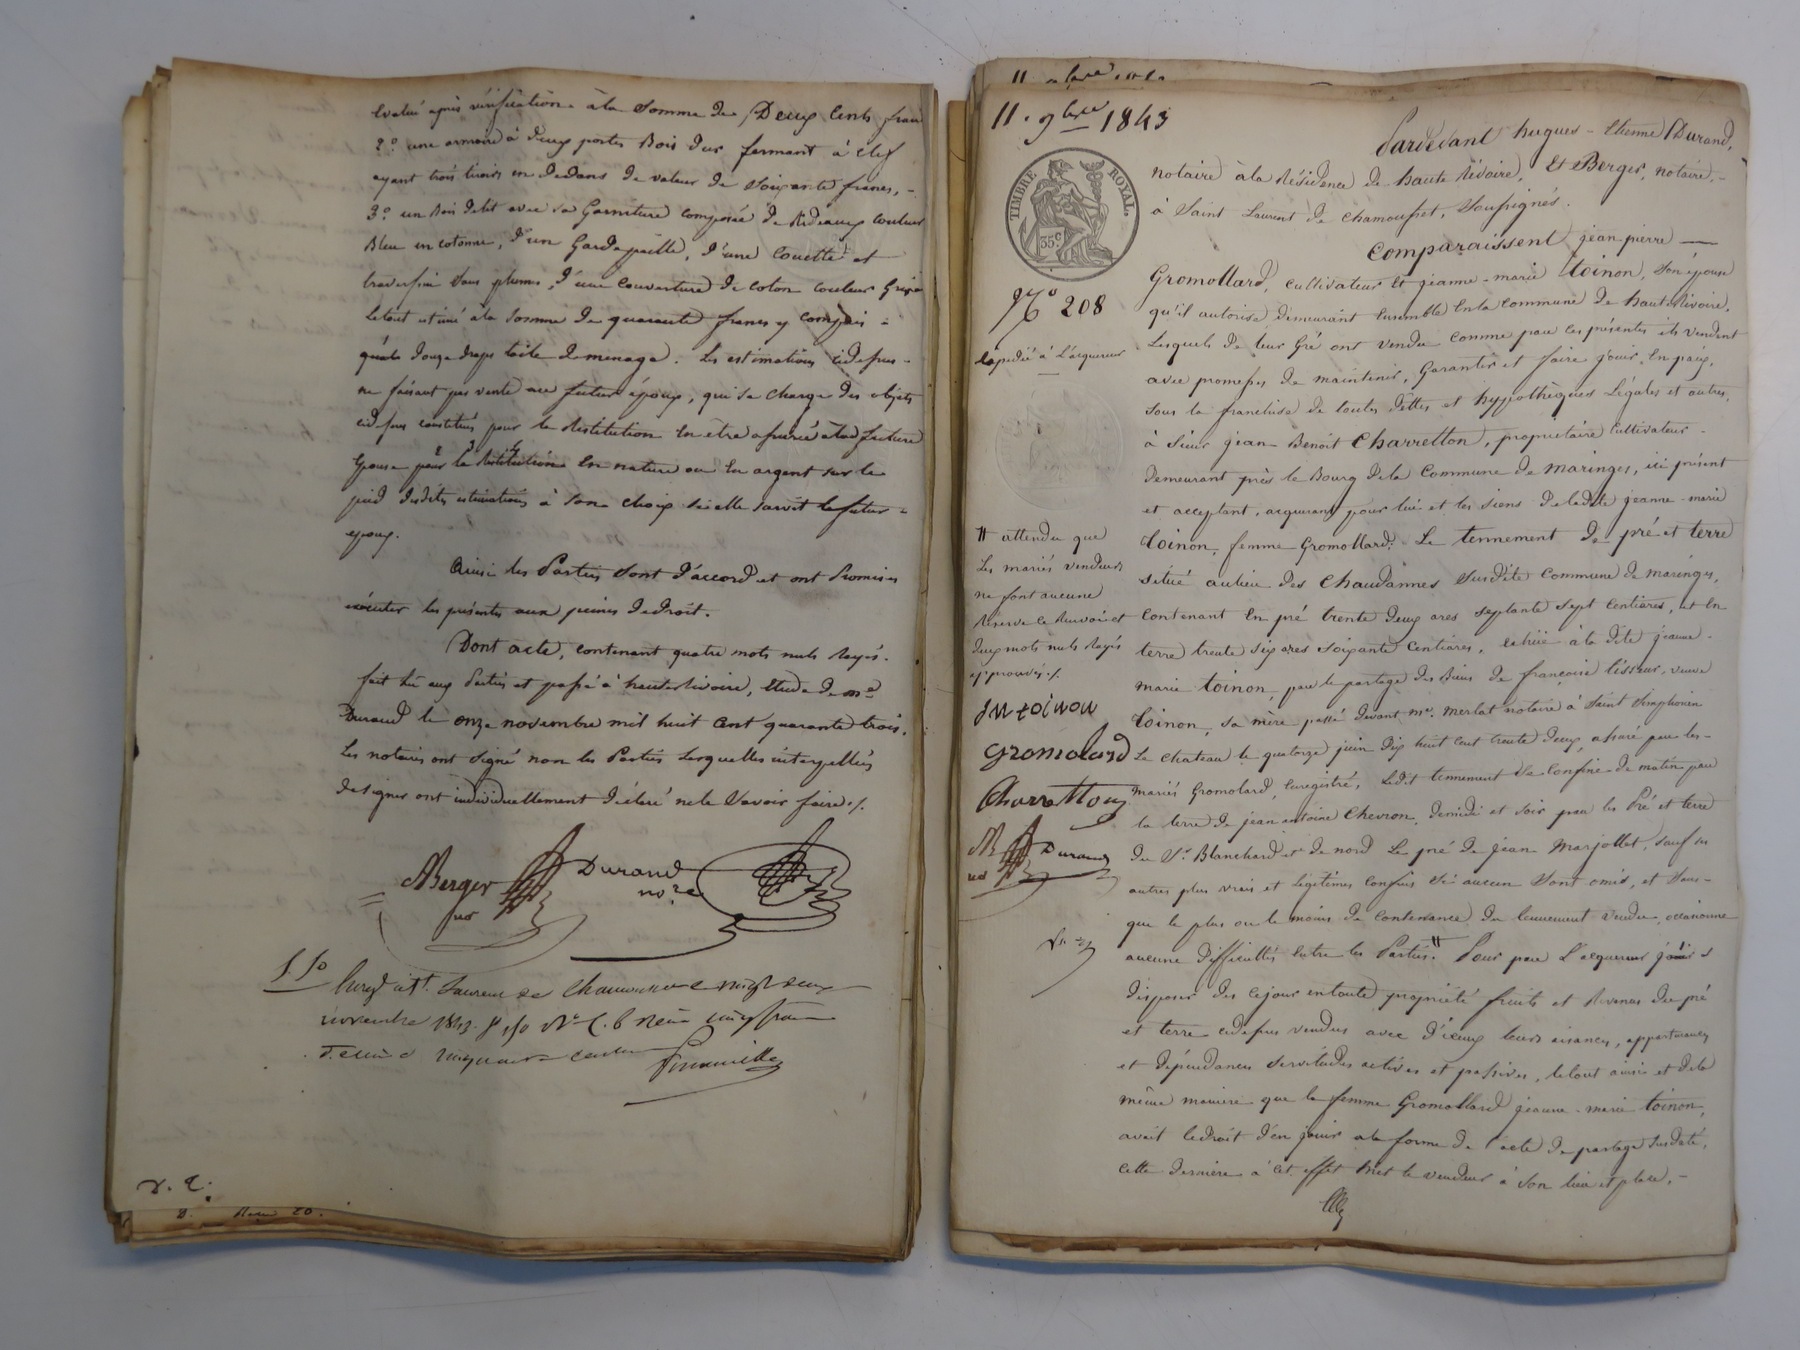 évalué après vérification à la somme de Deux Cents francs
2.° une armoire à deux portes Bois dur fermant à clef
ayant trois tiroirs en dedans de valeur de soixante francs, -
3.° un Bois de lit avec sa Garniture composée de Rideaux couleur
Bleu en cotonne, d'un Gardepaille, d'une Couette et
traversin sans plume, d'une couverture de coton couleur Grise
le tout estimé à la somme de quarante francs y compris -
quatre douze draps toile de ménage. Les estimations cidessus -
ne faisant pas vente au futur époux, qui se charge des objets
cidessus constitués pour la Restitution en être assurée à la future
Epouse pour la Restitution en nature ou en argent sur le
pied desdites estimations à son choix si elle survit le futur -
époux.
Ainsi les Parties sont d'accord et ont Promis
exécuter les présentes aux peines de droit.
Dont acte, contenant quatre mots nuls Rayés.
fait lu aux Parties et passé à hauterivoire, Etude de me
Durand le onze novembre mil huit cent quarante trois.
Les notaires ont signé non les Parties lesquelles interpellées
de signer ont individuellement déclaré ne le savoir faire ./.
Berger
nre
Durand
nore
Enregt. à St. Laurent de Chamousset le vingt deux
novembre 1843. f. 50 Vo C. 6 Reçu cinq francs
décime cinquante centimes
D. 2.
D. Reçu 20.
11. 9bre 1843
TIMBRE ROYAL.
35c
No 208
Expédié à l'acquéreur
Pardevant hugues - Etienne Durand,
notaire à la Résidence de haute Rivoire, Et Berger, notaire, -
à Saint Laurent de Chamousset, Soussignés.
Comparaissent jean pierre —
Gromollard, cultivateur Et jeanne-marie toinon, son épouse
qu'il autorise demeurant Ensemble En la commune de hauterivoire,
Lesquels de leur Gré ont vendu comme par ces présentes ils vendent
avec promesses de maintenir, Garantir et faire jouir En paix,
sous la franchise de toutes dettes et hypothèques Légales et autres,
à Sieur jean-Benoit Charretton, propriétaire Cultivateur -
demeurant près le Bourg de la Commune de maringes, ici présent
et acceptant, acquérant pour lui et les siens de ladite jeanne-marie
toinon, femme Gromollard. Le tennement de pré et terre
situé au lieu des Chaudannes susdite commune de maringes,
contenant En pré trente deux ares septante sept Centiares, et En
terre trente six ares soixante Centiares, échue à la dite jeanne -
marie toinon, par le partage des Biens de françoise tisseur, veuve
toinon, sa mère passé devant me. merlat notaire à Saint Simphorien
Le Chateau le quatorze juin dix huit cent trente deux, assuré par les -
mariés Gromolard, Enregistré, Ledit tennement se Confine de matin par
la terre de jean antoine Chevron, de midi et soir par les Pré et terre
du Sr. Blanchard et de nord Le pré de jean Marjollet, sauf ses
autres plus vrais et légitimes confins si aucun sont omis, et sans -
que le plus ou le moins de contenance du tennement vendu, occasionne
aucune difficultés Entre les Parties. # Pour par L'acquéreur jouir et
disposer dès ce jour en toute propriété fruits et Revenus des pré
et terre cidessus vendus avec d'iceux leurs aisances, appartenances
et dépendances servitudes actives et passives, le tout ainsi et de la
même manière que la femme Gromollard jeanne-marie toinon,
avait le droit d'en jouir à la forme de l'acte de partage susdaté,
cette dernière à cet effet met le vendeur à son lieu et place, -
# attendu que
Les mariés vendeurs
ne font aucune
Réserve ce Renvoi et
deux mots nuls Rayés
approuvés ./.
JM toinon
Gromolard
Charretton
Durand